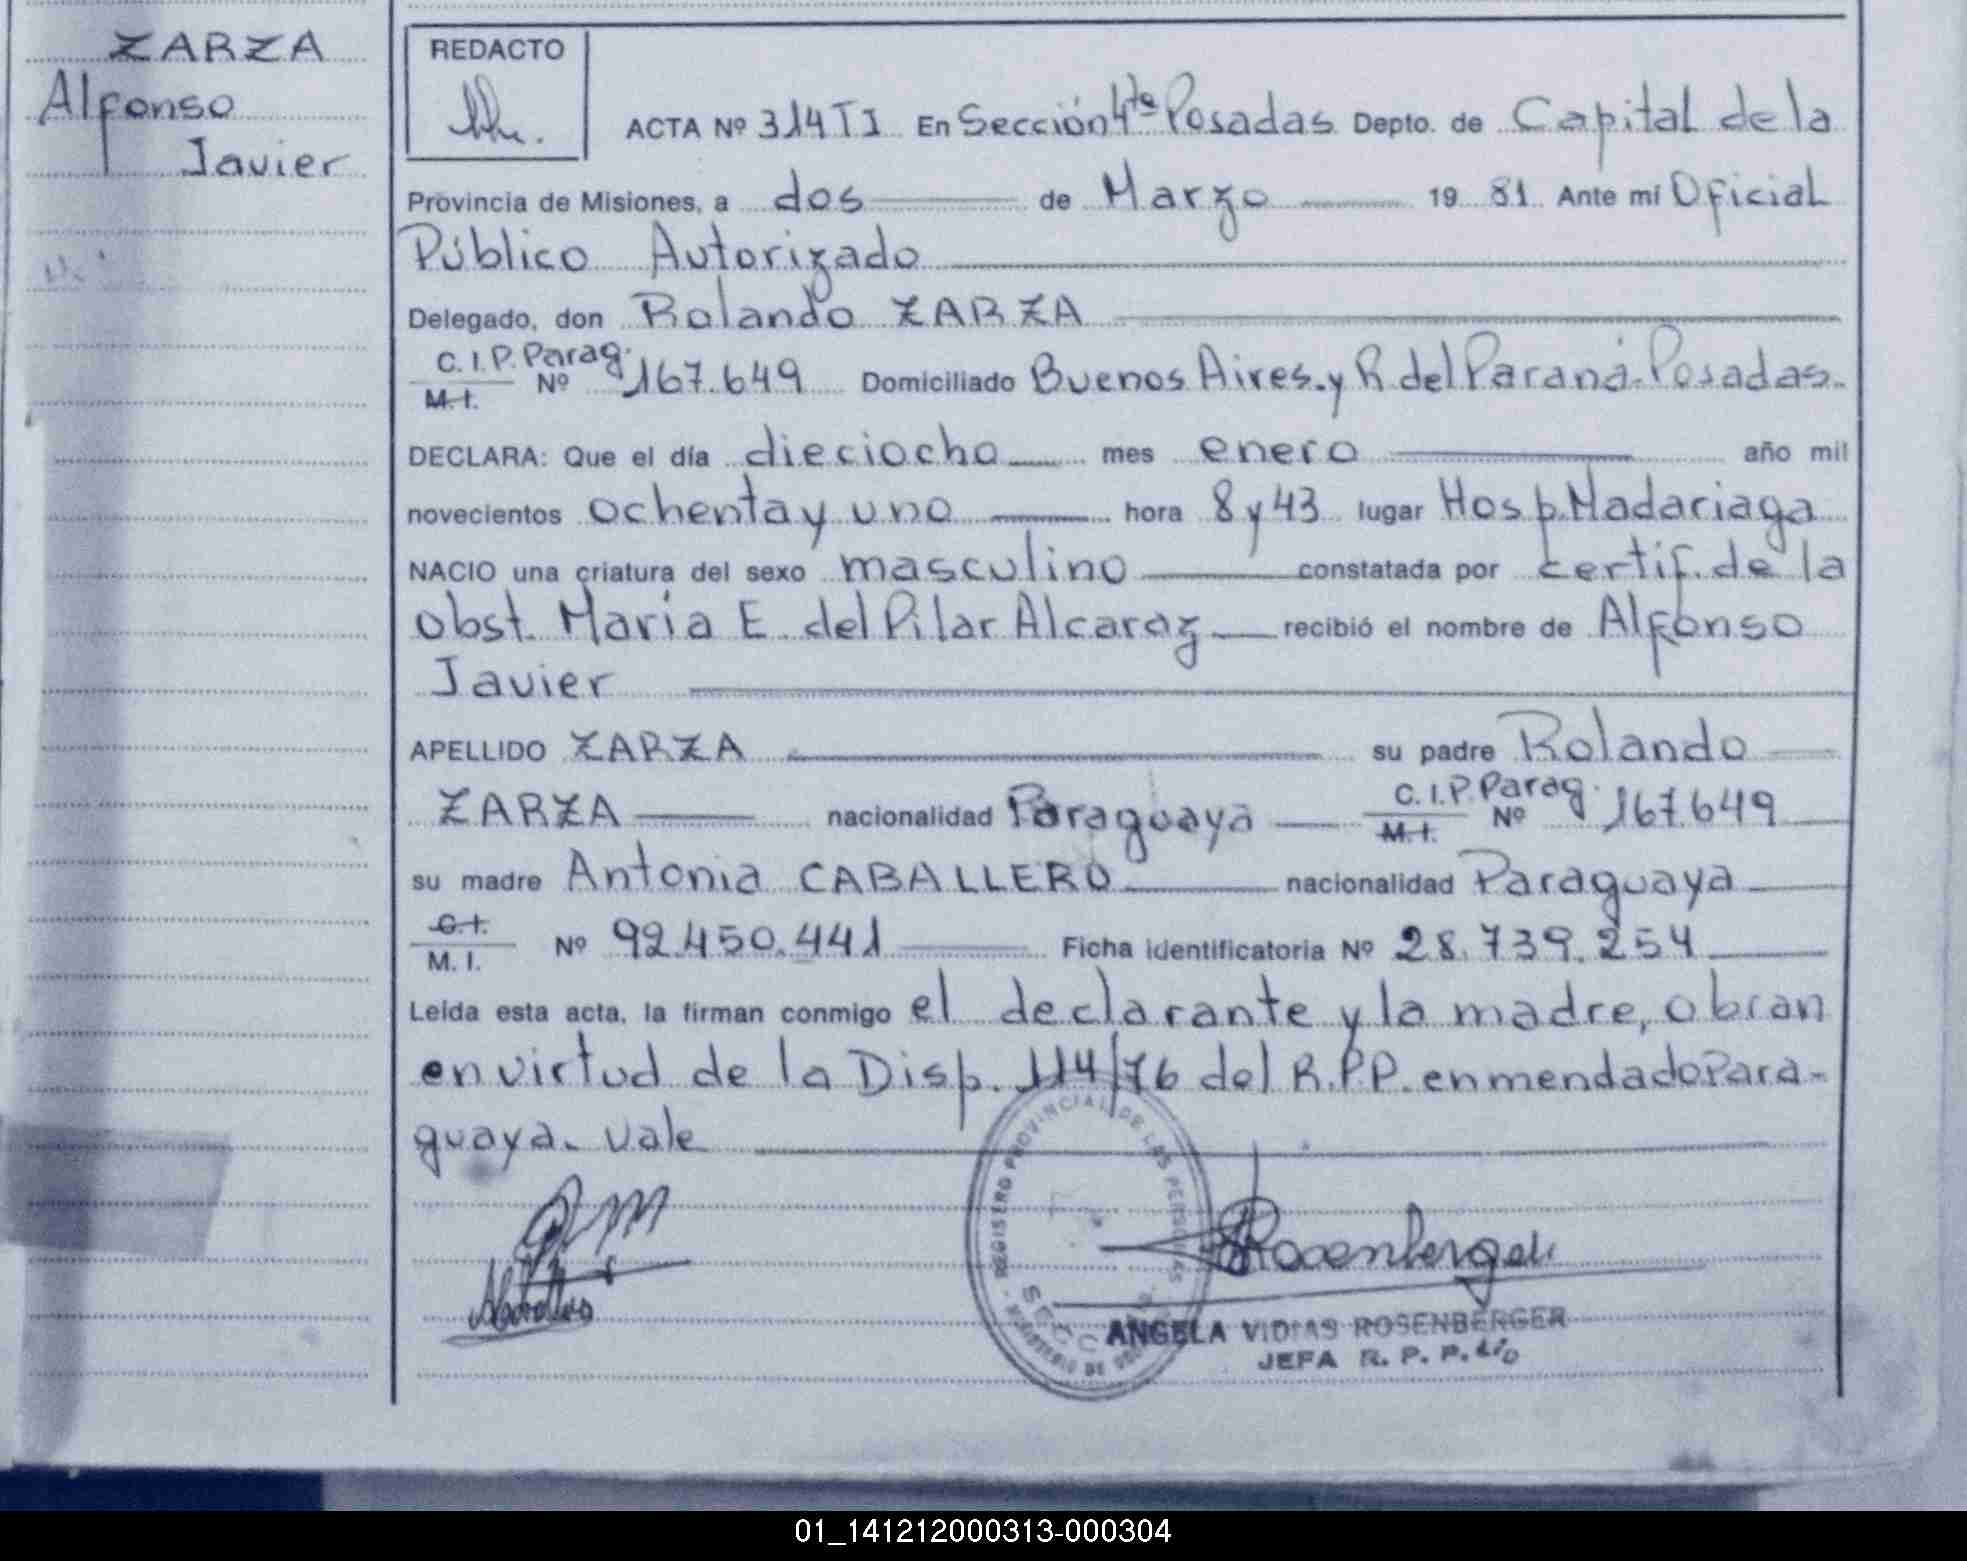 ZARZA
Alfonso
Javier
REDACTO
ACTA Nº 314 TI En Sección 4ta Posadas Depto. de Capital de la
Provincia de Misiones, a dos de Marzo 19 81. Ante mí Oficial
Público Autorizado
Delegado, don Rolando ZARZA
C.I.P. Parag. M.I. Nº 167.649 Domiciliado Buenos Aires y R. del Paraná. Posadas.
DECLARA: Que el día dieciocho mes enero año mil
novecientos ochenta y uno hora 8 y 43 lugar Hosp. Madariaga
NACIO una criatura del sexo masculino constatada por certif. de la
obst. María E. del Pilar Alcaraz recibió el nombre de Alfonso
Javier
APELLIDO ZARZA su padre Rolando
ZARZA nacionalidad Paraguaya C.I.P. Parag. M.I. Nº 167.649
su madre Antonia CABALLERO nacionalidad Paraguaya
C.I. M.I. Nº 92.450.441 Ficha identificatoria Nº 28.739.254
Leída esta acta, la firman conmigo el declarante y la madre, obran
en virtud de la Disp. 114/76 del R.P.P. enmendado Para-
guaya. Vale
REGISTRO PROVINCIAL DE LAS PERSONAS
Rosenberger
ANGELA VIDIAS ROSENBERGER
JEFA R. P. P.
01_141212000313-000304